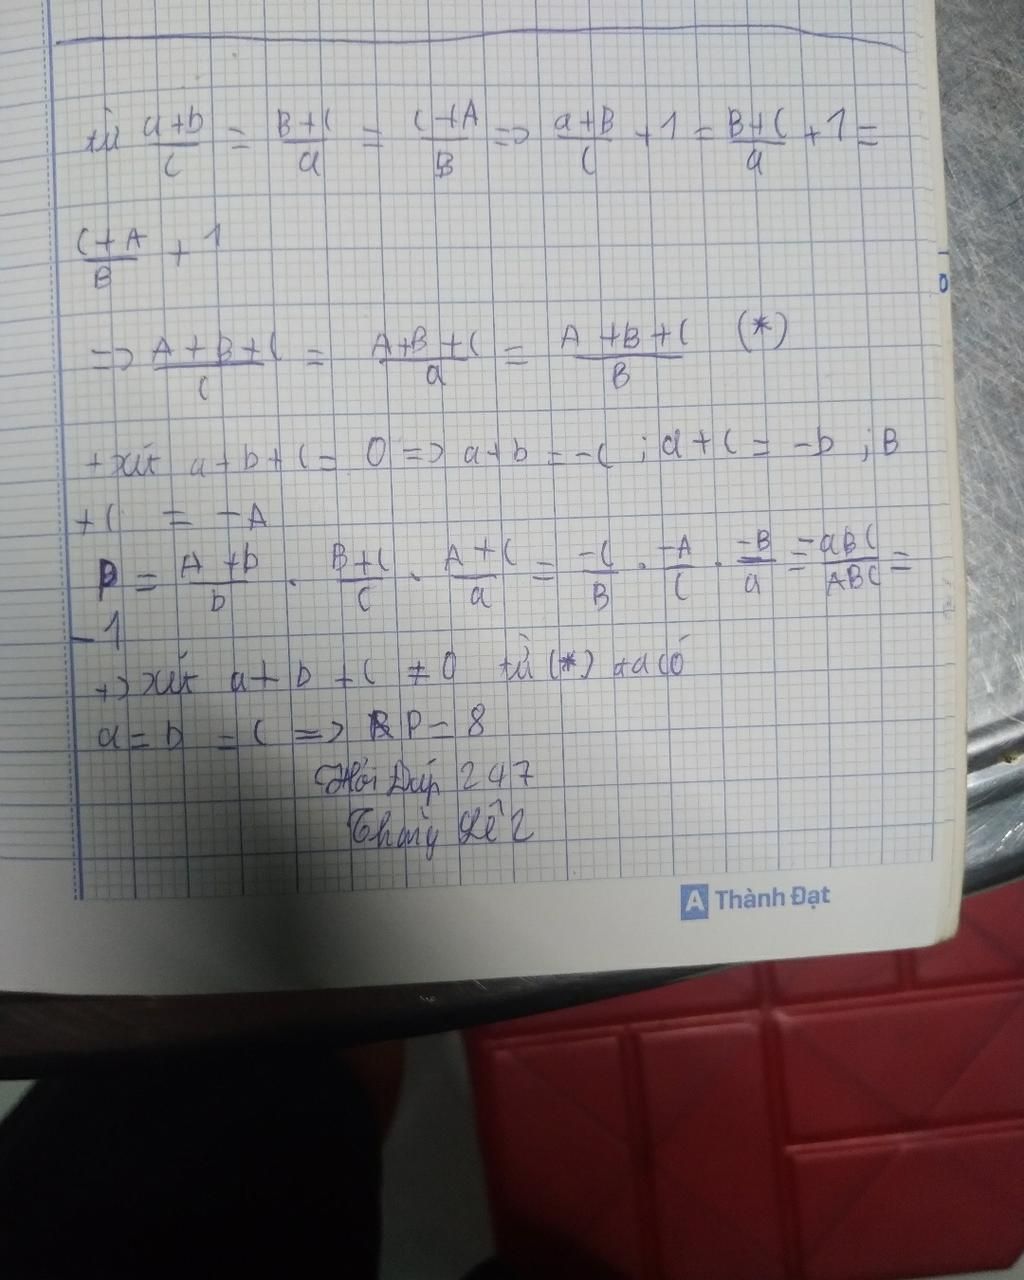 từ a+b/c = B+C/a = C+A/B => a+B/C + 1 = B+C/a + 1 =
C+A/B + 1
=> A+B+C/C = A+B+C/a = A+B+C/B (*)
+ xét a+b+c = 0 => a+b = -c ; a+c = -b ; B
+C = -A
P = A+b/b . B+C/C . A+C/a = -C/B . -A/C . -B/a = -aBC/ABC =
-1
+> xét a+b+c ≠ 0 từ (*) ta có
a = b = c => P = 8
Hỏi Đáp 247
A Thành Đạt